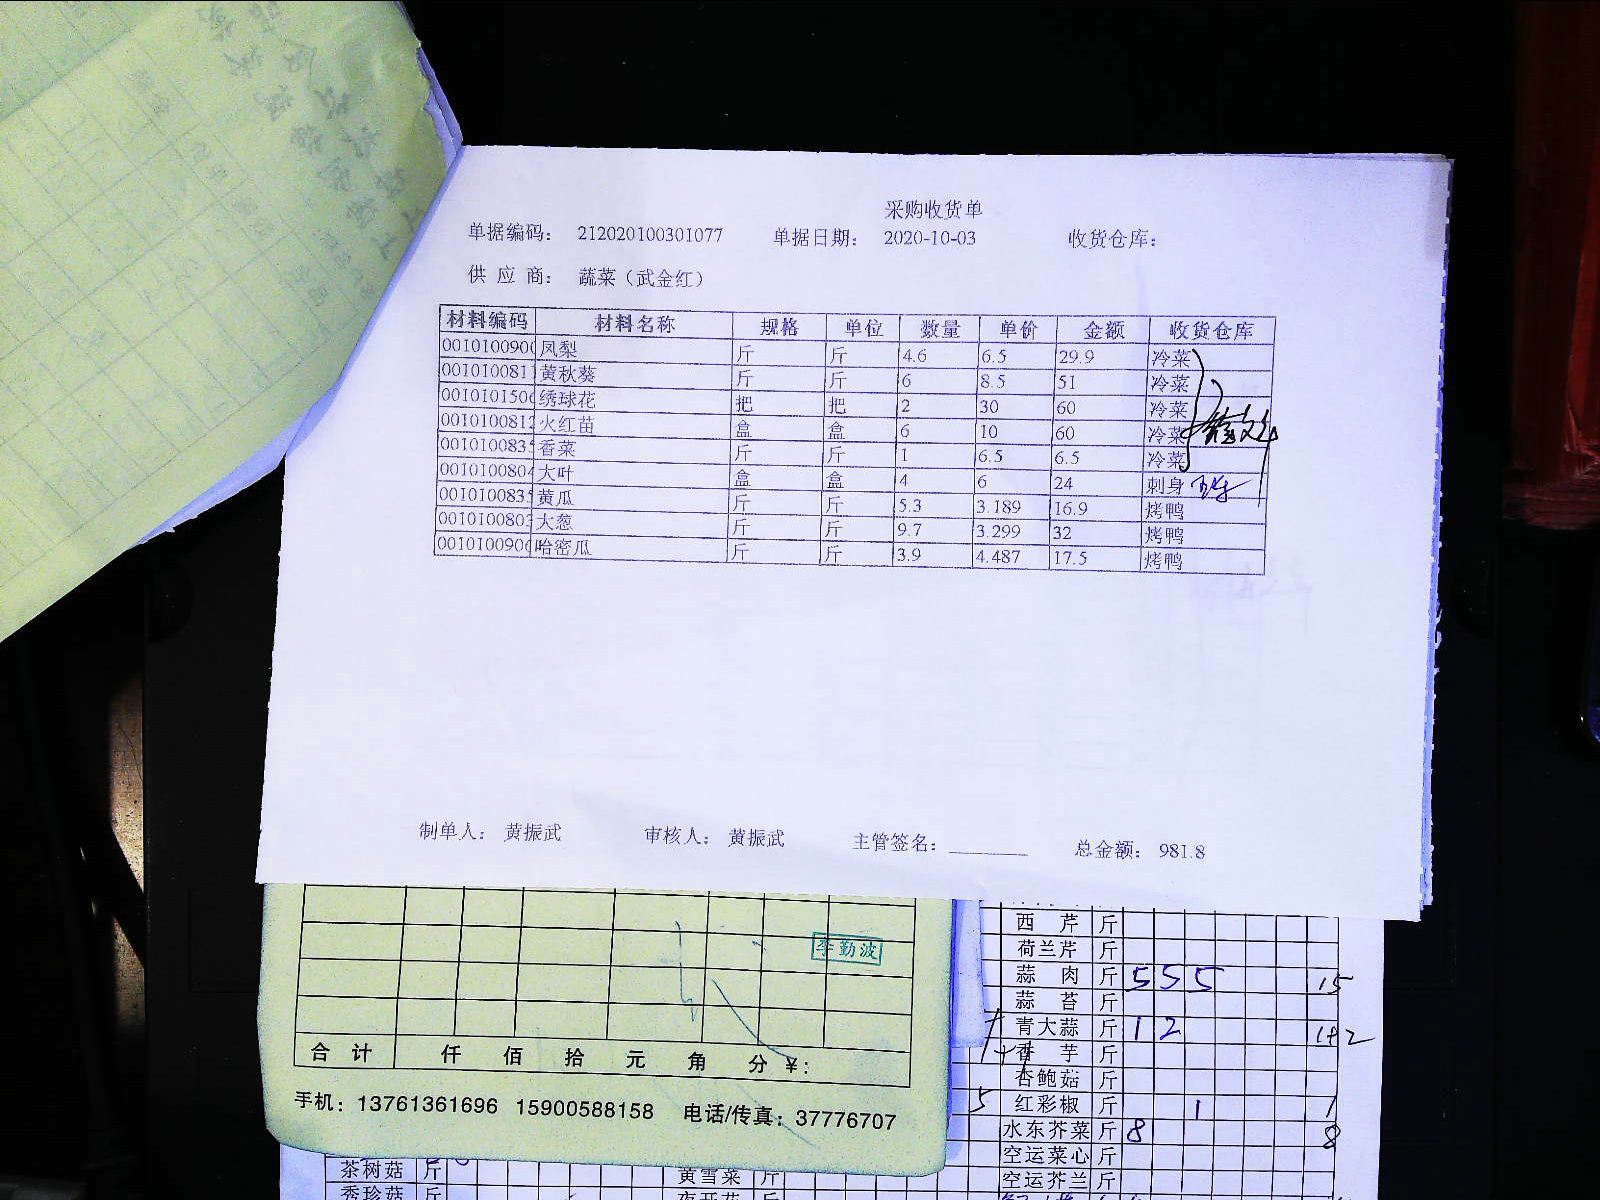 采购收货单
单据编码： 212020100301077 单据日期： 2020-10-03 收货仓库：
供 应 商： 蔬菜（武金红）
材料编码 材料名称 规格 单位 数量 单价 金额 收货仓库
001010090 凤梨 斤 斤 4.6 6.5 29.9 冷菜
001010081 黄秋葵 斤 斤 6 8.5 51 冷菜
001010150 绣球花 把 把 2 30 60 冷菜
001010081 火红苗 盒 盒 6 10 60 冷菜
001010083 香菜 斤 斤 1 6.5 6.5 冷菜
001010080 大叶 盒 盒 4 6 24 刺身
001010083 黄瓜 斤 斤 5.3 3.189 16.9 烤鸭
001010080 大葱 斤 斤 9.7 3.299 32 烤鸭
001010090 哈密瓜 斤 斤 3.9 4.487 17.5 烤鸭
制单人： 黄振武 审核人： 黄振武 主管签名： 总金额： 981.8
李勤波
合 计 仟 佰 拾 元 角 分 ¥:
手机：13761361696 15900588158 电话/传真：37776707
西 芹 斤
荷兰芹 斤
蒜 肉 斤 5 5 5 15
蒜 苔 斤
青大蒜 斤 1 2 1+2
香 芋 斤
杏鲍菇 斤
5 红彩椒 斤 1 1
水东芥菜 斤 8 8
空运菜心 斤
空运芥兰 斤
茶树菇 斤 黄雪菜 斤
秀珍菇 斤